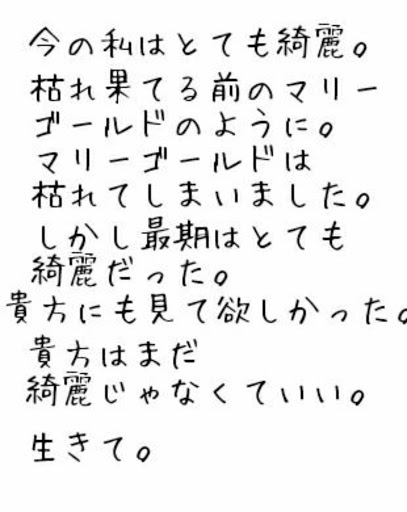 今の私はとても綺麗。
枯れ果てる前のマリー
ゴールドのように。
マリーゴールドは
枯れてしまいました。
しかし最期はとても
綺麗だった。
貴方にも見て欲しかった。
貴方はまだ
綺麗じゃなくていい。
生きて。